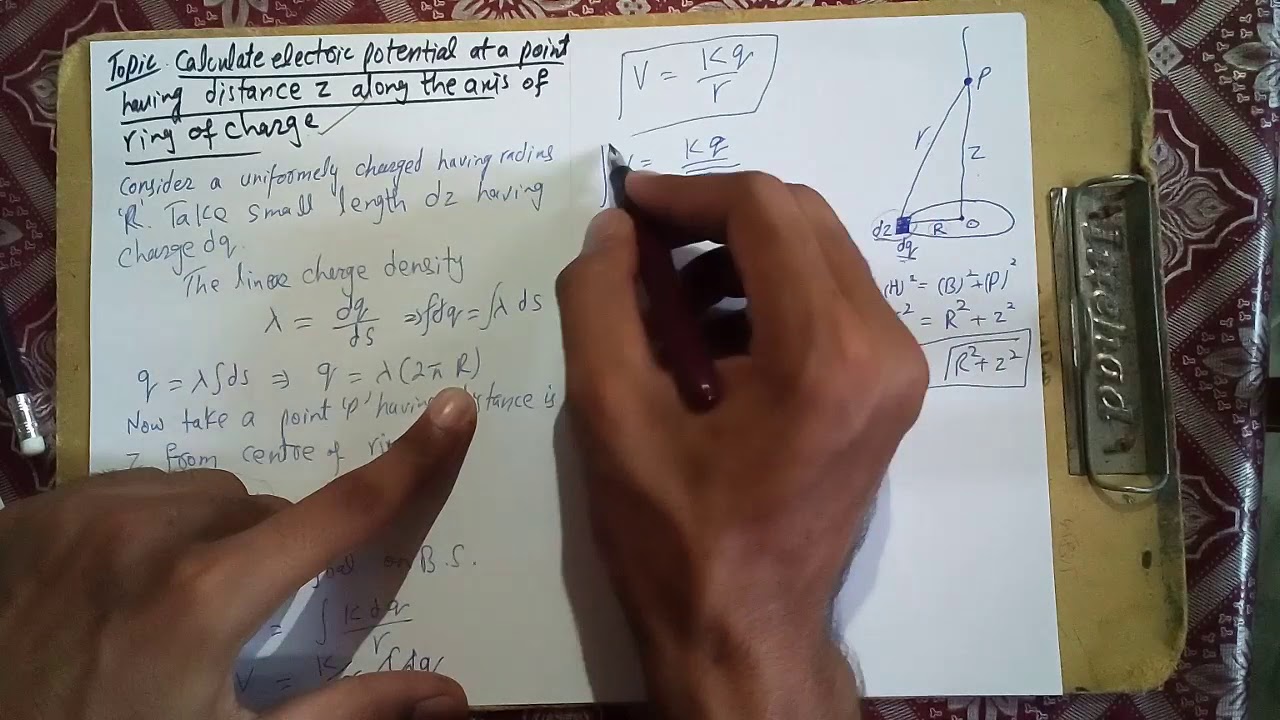 Topic. Calculate electroic potential at a point
having distance z along the axis of
ring of charge
Consider a uniformely charged having radius
'R'. Take small length dz having
charge dq.
The linear charge density
λ = dq/ds ⇒ ∫dq = ∫λ ds
q = λ∫ds ⇒ q = λ(2π R)
Now take a point 'p' having distance is
Z from centre of
on B.S.
= ∫ K dq / r
V = ∫dq
V = Kq/r
V = Kq
P
r
z
dz
R
O
dq
(H)² = (B)² + (P)²
= R² + z²
√R² + z²